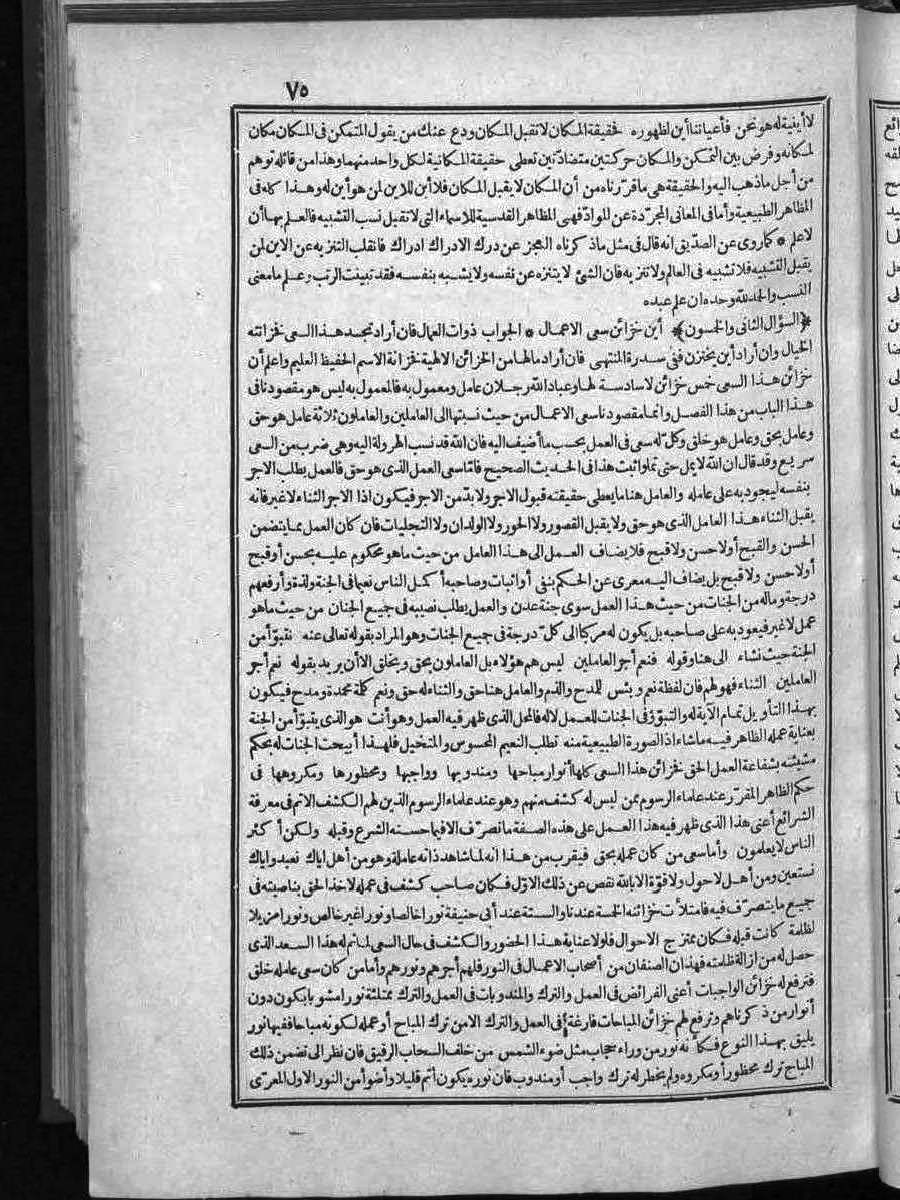 ٧٥
لا أينية له هو نحن فأعياننا أين لظهوره فحقيقة المكان لا تقبل المكان ودع عنك من يقول المتمكن فى المكان مكان
لمكانه وفرض بين التمكن والمكان حركتين متضادتين تعطى حقيقة المكانية لكل واحد منهما وهذا من قائله توهم
من أجل ما ذهب اليه والحقيقة هى ما قررناه من أن المكان لا يقبل المكان فلا أين للاين لمن هو أين له وهذا كله فى
المظاهر الطبيعية وأما فى المعانى المجرّدة عن الموادّ فهى المظاهر القدسية للاسماء التى لا تقبل نسب التشبيه فالعلم بها أن
لا علم * كما روى عن الصدّيق انه قال فى مثل ما ذكرناه العجز عن درك الادراك ادراك فانقلب التنزيه عن الاين لمن
يقبل التشبيه فلا تشبيه فى العالم ولا تنزيه فان الشئ لا يتنزه عن نفسه ولا يشبه بنفسه فقد تبينت الرتب وعلم ما معنى
النسب والحمد لله وحده ان علم عبده
﴿السؤال الثانى والخمسون﴾ أين خزائن سعى الاعمال * الجواب ذوات العمال فان أراد تجسد هذا السعى فخزانته
الخيال وان أراد أين يختزن ففى سدرة المنتهى فان أراد ما لها من الخزائن الالهية فخزانة الاسم الحفيظ العليم واعلم أن
خزائن هذا السعى خمس خزائن لا سادسة لها وعباد الله رجلان عامل ومعمول به فالمعمول به ليس هو مقصودنا فى
هذا الباب من هذا الفصل وانما مقصودنا سعى الاعمال من حيث نسبتها الى العاملين والعاملون ثلاثة عامل هو حق
وعامل بحق وعامل هو خلق وكلّ له سعى فى العمل بحسب ما أضيف اليه فان الله قد نسب الهرولة اليه وهى ضرب من السعى
سريع وقد قال ان الله لا يمل حتى تملوا ثبت هذا فى الحديث الصحيح فأما سعى العمل الذى هو حق فالعمل يطلب الاجر
بنفسه ليجود به على عامله والعامل هنا ما يعطى حقيقته قبول الاجر ولا بدّ من الاجر فيكون اذا الاجر الثناء لا غير فانه
يقبل الثناء هذا العامل الذى هو حق ولا يقبل القصور ولا الحور ولا الولدان ولا التجليات فان كان العمل مما يتضمن
الحسن والقبح أو لا حسن ولا قبح فلا يضاف العمل الى هذا العامل من حيث ما هو محكوم عليه بحسن أو قبح
أو لا حسن ولا قبح بل يضاف اليه معرى عن الحكم بنفى أو اثبات وصاحبه أكمل الناس نعيما فى الجنة ولذة وأرفعهم
درجة وماله من الجنات من حيث هذا العمل سوى جنة عدن والعمل يطلب نصيبه فى جميع الجنان من حيث ما هو
عمل لا غير فيعود به على صاحبه بل يكون له مركبا الى كلّ درجة فى جميع الجنات وهو المراد بقوله تعالى عنه نتبوّأ من
الجنة حيث نشاء الى هنا وقوله فنعم أجر العاملين ليس هم هؤلاء بل العاملون بحق وبخلق الا أن يريد بقوله نعم أجر
العاملين الثناء فهو لهم فان لفظة نعم وبئس للمدح والذم والعامل هنا حق والثناء له حق ونعم كلمة محمدة ومدح فيكون
بهذا التأويل تمام الآية له والتبوّؤ فى الجنات للعمل لا له فالمحل الذى ظهر فيه العمل وهو أنت هو الذى يتبوّأ من الجنة
بعناية عمله الظاهر فيه ما شاء اذ الصورة الطبيعية منه تطلب النعيم المحسوس والمتخيل فلهذا أبيحت الجنات له بحكم
مشيئته بشفاعة العمل الحق فخزائن هذا السعى كلها أنوار مباحها ومندوبها وواجبها ومحظورها ومكروهها فى
حكم الظاهر المقرّر عند علماء الرسوم ممن ليس له كشف منهم وهو عند علماء الرسوم الذين لهم الكشف الاتم فى معرفة
الشرائع أعنى هذا الذى ظهر فيه هذا العمل على هذه الصفة ما تصرّف الا فيما حسنه الشرع وقبله ولكن أكثر
الناس لا يعلمون وأما سعى من كان عمله بحق فيقرب من هذا انه لما شاهد ذاته عاملة وهو من أهل اياك نعبد واياك
نستعين ومن أهل لا حول ولا قوّة الا بالله نقص عن ذلك الاوّل فكان صاحب كشف فى عمله لاخذ الحق بناصيته فى
جميع ما يتصرّف فيه فامتلأت خزائنه الخمسة عندنا والستة عند أبى حنيفة نورا خالصا ونورا غير خالص ونورا مزيلا
لظلمة كانت قبله فكان ممتزج الاحوال فلولا عناية هذا الحضور والكشف فى حال السعى لما تم له هذا السعد الذى
حصل له من ازالة ظلمته فهذان الصنفان من أصحاب الاعمال فى النور فلهم أجرهم ونورهم وأما من كان سعى عامله خلق
فترفع له خزائن الواجبات أعنى الفرائض فى العمل والترك والمندوبات فى العمل والترك ممتلئة نورا مشوبا يكون دون
أنوار من ذكرناهم وترفع لهم خزائن المباحات فارغة فى العمل والترك الا من ترك المباح أو عمله لكونه مباحا ففيها نور
يليق بهذا النوع فكأنه نور من وراء حجاب مثل ضوء الشمس من خلف السحاب الرقيق فان نظر الى تضمن ذلك
المباح ترك محظور أو مكروه ولم يخطر له ترك واجب أو مندوب فان نوره يكون أتم قليلا وأضوأ من النور الاول المعرّى